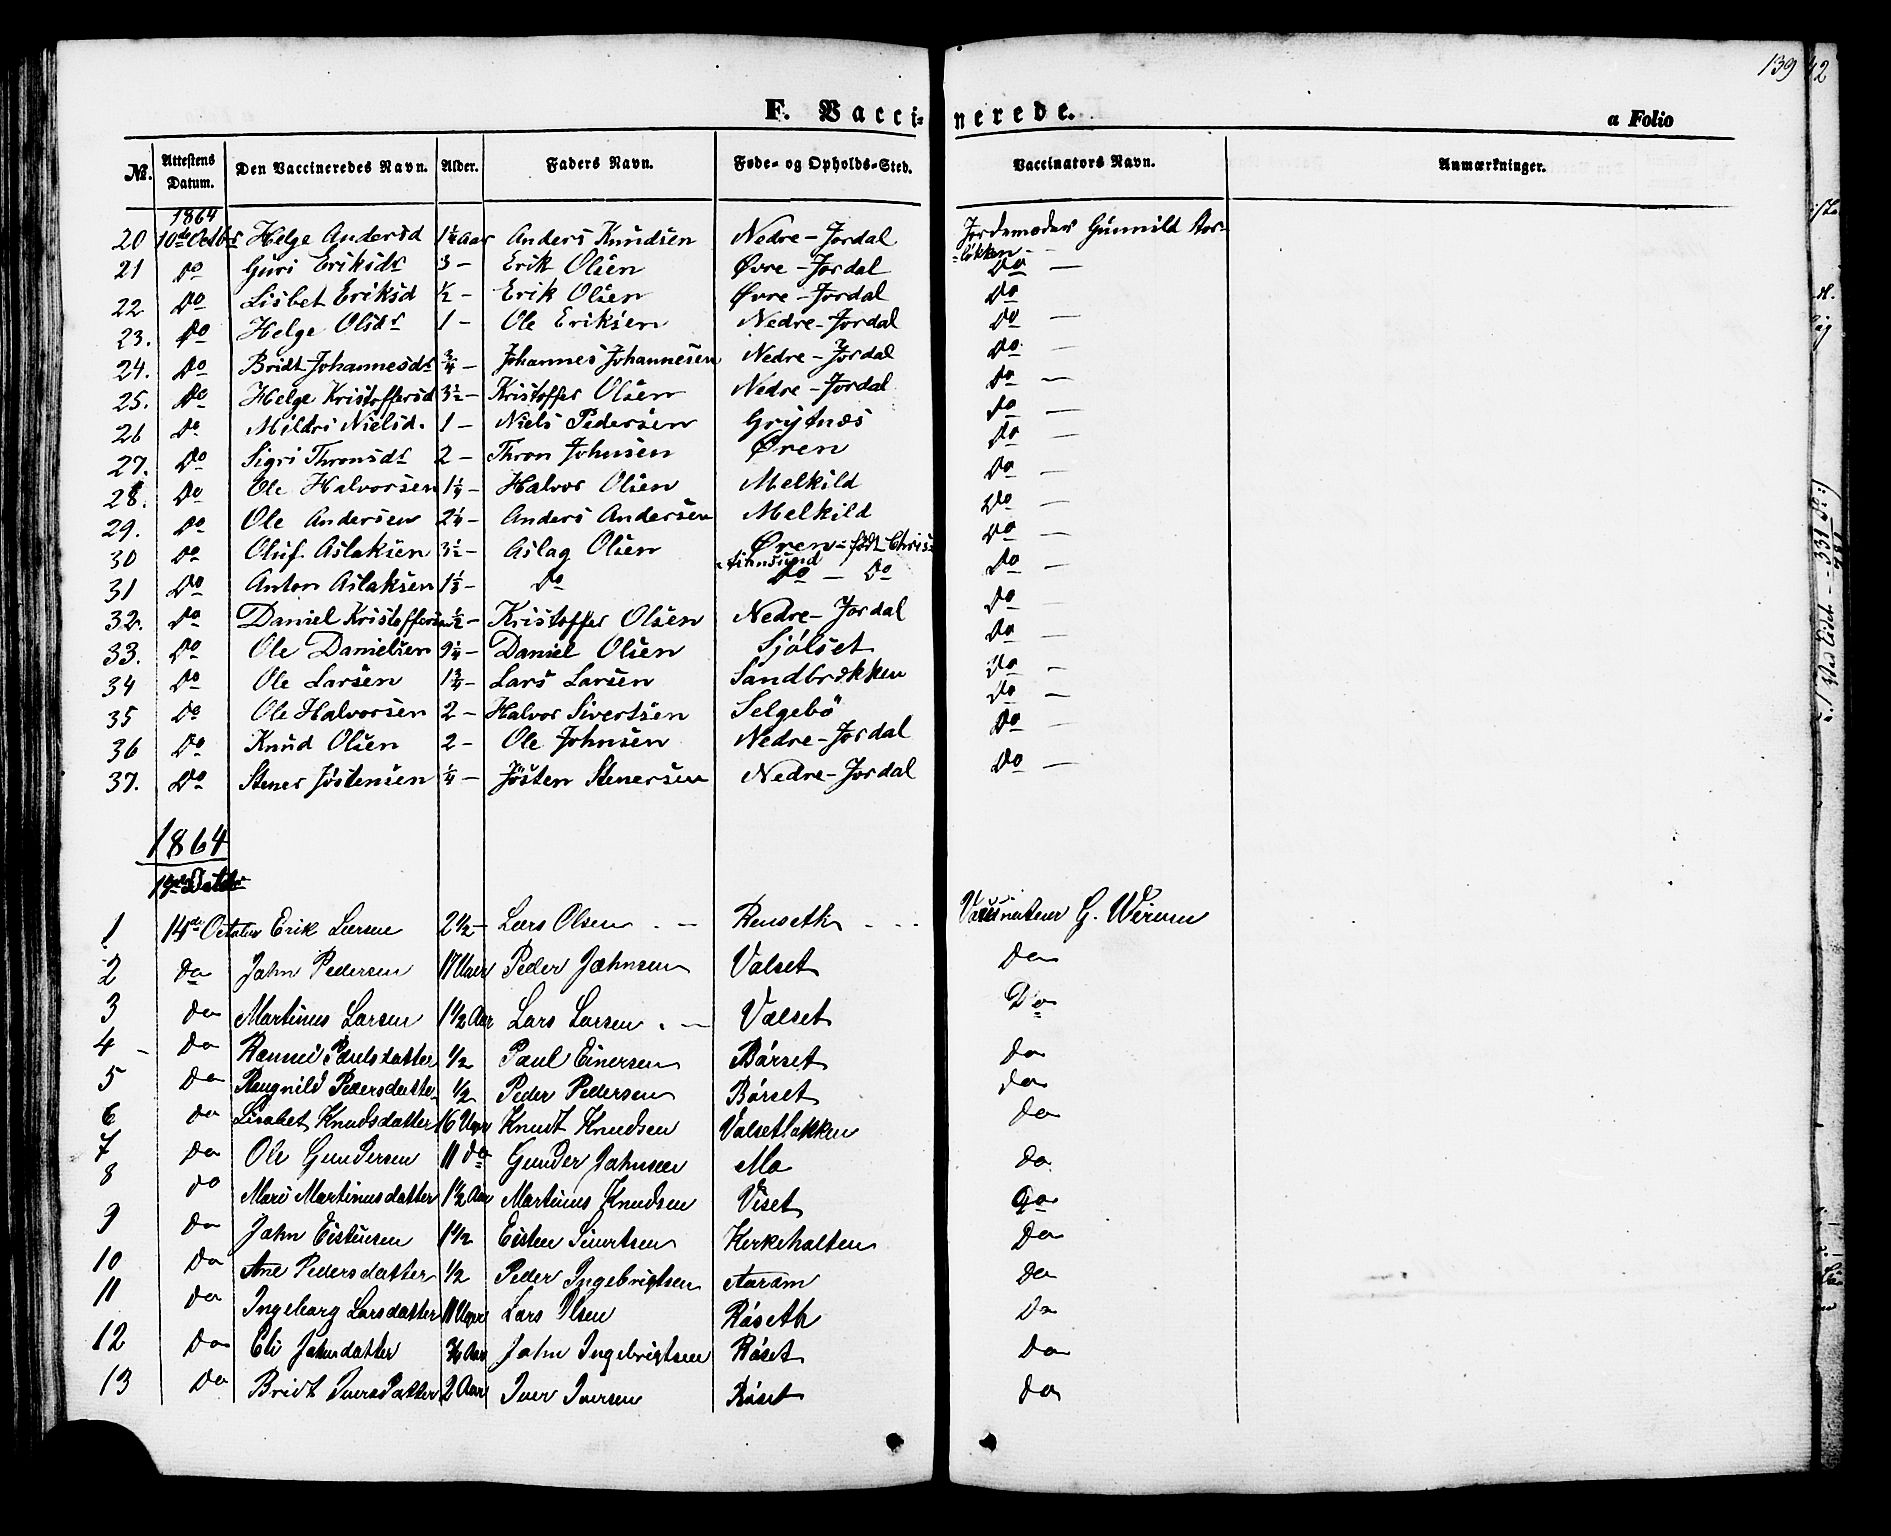 139
42
F. Vaccinerede.
a Folio
№. Attestens Datum. Den Vaccineredes Navn. Alder. Faders Navn. Føde- og Opholds-Sted. Vaccinators Navn. Anmærkninger.
1864
20 10de Octbr Helge Andersd 1¼ Aar Anders Knudsen Nedre-Jordal Jordemoder Gunnild Aas-
løkken
21 Do Guri Eriksdr 3 - Erik Olsen Øvre-Jordal Do -
22 Do Lisbet Eriksd ½ - Erik Olsen Øvre-Jordal Do
23. Do Helge Olsdr 1 - Ole Eriksen Nedre-Jordal Do -
24. Do Bridt Johannesdr ¾ - Johannes Johannesen Nedre-Jordal Do -
25. Do Helge Kristoffersd 3½ - Kristoffer Olsen Nedre-Jordal Do -
26 Do Mildri Nielsd. 1 - Niels Pedersen Grytnæs Do -
27. Do Sigri Thronsdr 2 - Thron Johnsen Øren Do -
28. Do Ole Halvorsen 1¼ - Halvor Olsen Melkild Do -
29. Do Ole Andersen 2¼ - Anders Andersen Melkild Do -
30 Do Oluf. Aslaksen 3½ - Aslag Olsen Øren - født Chris-
tiansund
31 Do Anton Aslaksen 1⅓ - Do Do - Do Do -
32. Do Daniel Kristoffersen ½ - Kristoffer Olsen Nedre-Jordal Do -
33. Do Ole Danielsen 9¼ - Daniel Olsen Sjølset Do -
34 Do Ole Larsen 1¾ - Lars Larsen Sandbrekken Do -
35 Do Ole Halvorsen 2 - Halvor Sivertsen Selgebø Do -
36 Do Knud Olsen 2 - Ole Johnsen Nedre-Jordal Do -
37. Do Stener Jøstensen ¼ - Jøsten Stenersen Nedre-Jordal Do -
1864
1 14de October Erik Larsen 2½ - Lars Olsen - Renseth Vaccinateur G. Wirum
2 Do John Pedersen 17 Uger Peder Johnsen Valset Do
3 Do Martinus Larsen 1½ Aar Lars Larsen - Valset Do
4 - Do Rannei Paulsdatter ½ Paul Einersen Børset Do
5 Do Rangnild Pedersdatter ½ Peder Pedersen Børset Do
6 Do Lisabet Knudsdatter 16 Uger Knudt Knudsen Valsetløkken Do
7 Do Ole Gundersen 11 do Gunder Johnsen Mo Do
8 Do Mari Martinusdatter 1½ Aar Martinus Knudsen Viset Do
9 Do John Eistensen 1½ Eisten Sivertsen Kirkeholten Do
10 Do Ane Pedersdatter ½ Peder Ingebrigtsen Aaram Do
11 Do Ingeborg Larsdatter 11 Uger Lars Olsen Røseth Do
12 Do Eli Johnsdatter ¾ Aar John Ingebrigtsen Røset Do
13 Do Bridt Iversdatter 2 Aar Iver Iversen Røset Do